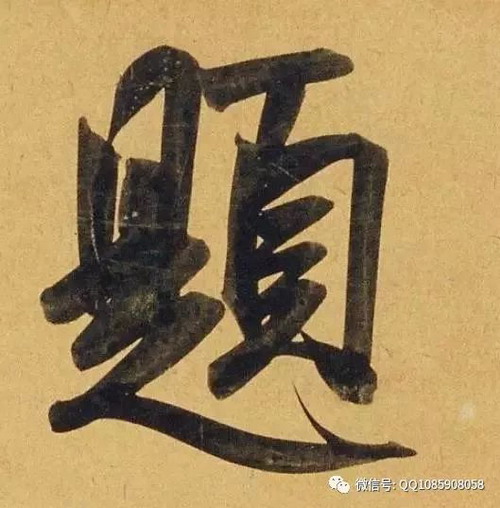 題
微信号: QQ1085908058